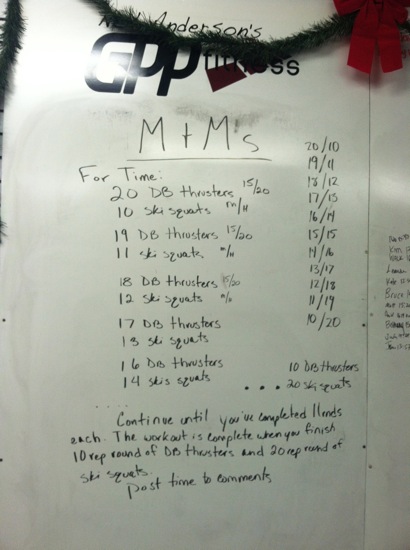 Anderson's
GPP fitness
M + M's
For Time:
20 DB thrusters 15/20
10 ski squats m/H
19 DB thrusters 15/20
11 ski squats m/H
18 DB thrusters 15/20
12 ski squats m/H
17 DB thrusters
13 ski squats
16 DB thrusters
14 skis squats
. . . . .
20/10
19/11
18/12
17/13
16/14
15/15
14/16
13/17
12/18
11/19
10/20
10 DB thrusters
. . . 20 ski squats
Continue until you've completed 11 rnds
each. The workout is complete when you finish
10 rep round of DB thrusters and 20 rep round of
ski squats.
Post time to comments
Bruce